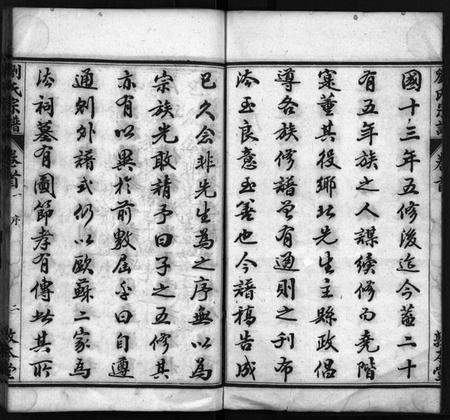 國十三年五修後迄今蓋二十
有五年族之人謀續修而堯階
寔董其役鄉北先生主縣政倡
導各族修譜曾有通則之刊布
法至良意至善也今譜稿告成
已久会非先生為之序無以為
宗族光敢請予曰子之五修其
亦有以異於前數屆乎曰自遵
通例外譜式仍以歐蘇二家為
法祠墓有圖節孝有傳此其所
劉氏宗譜
卷首
序
二
敦本堂